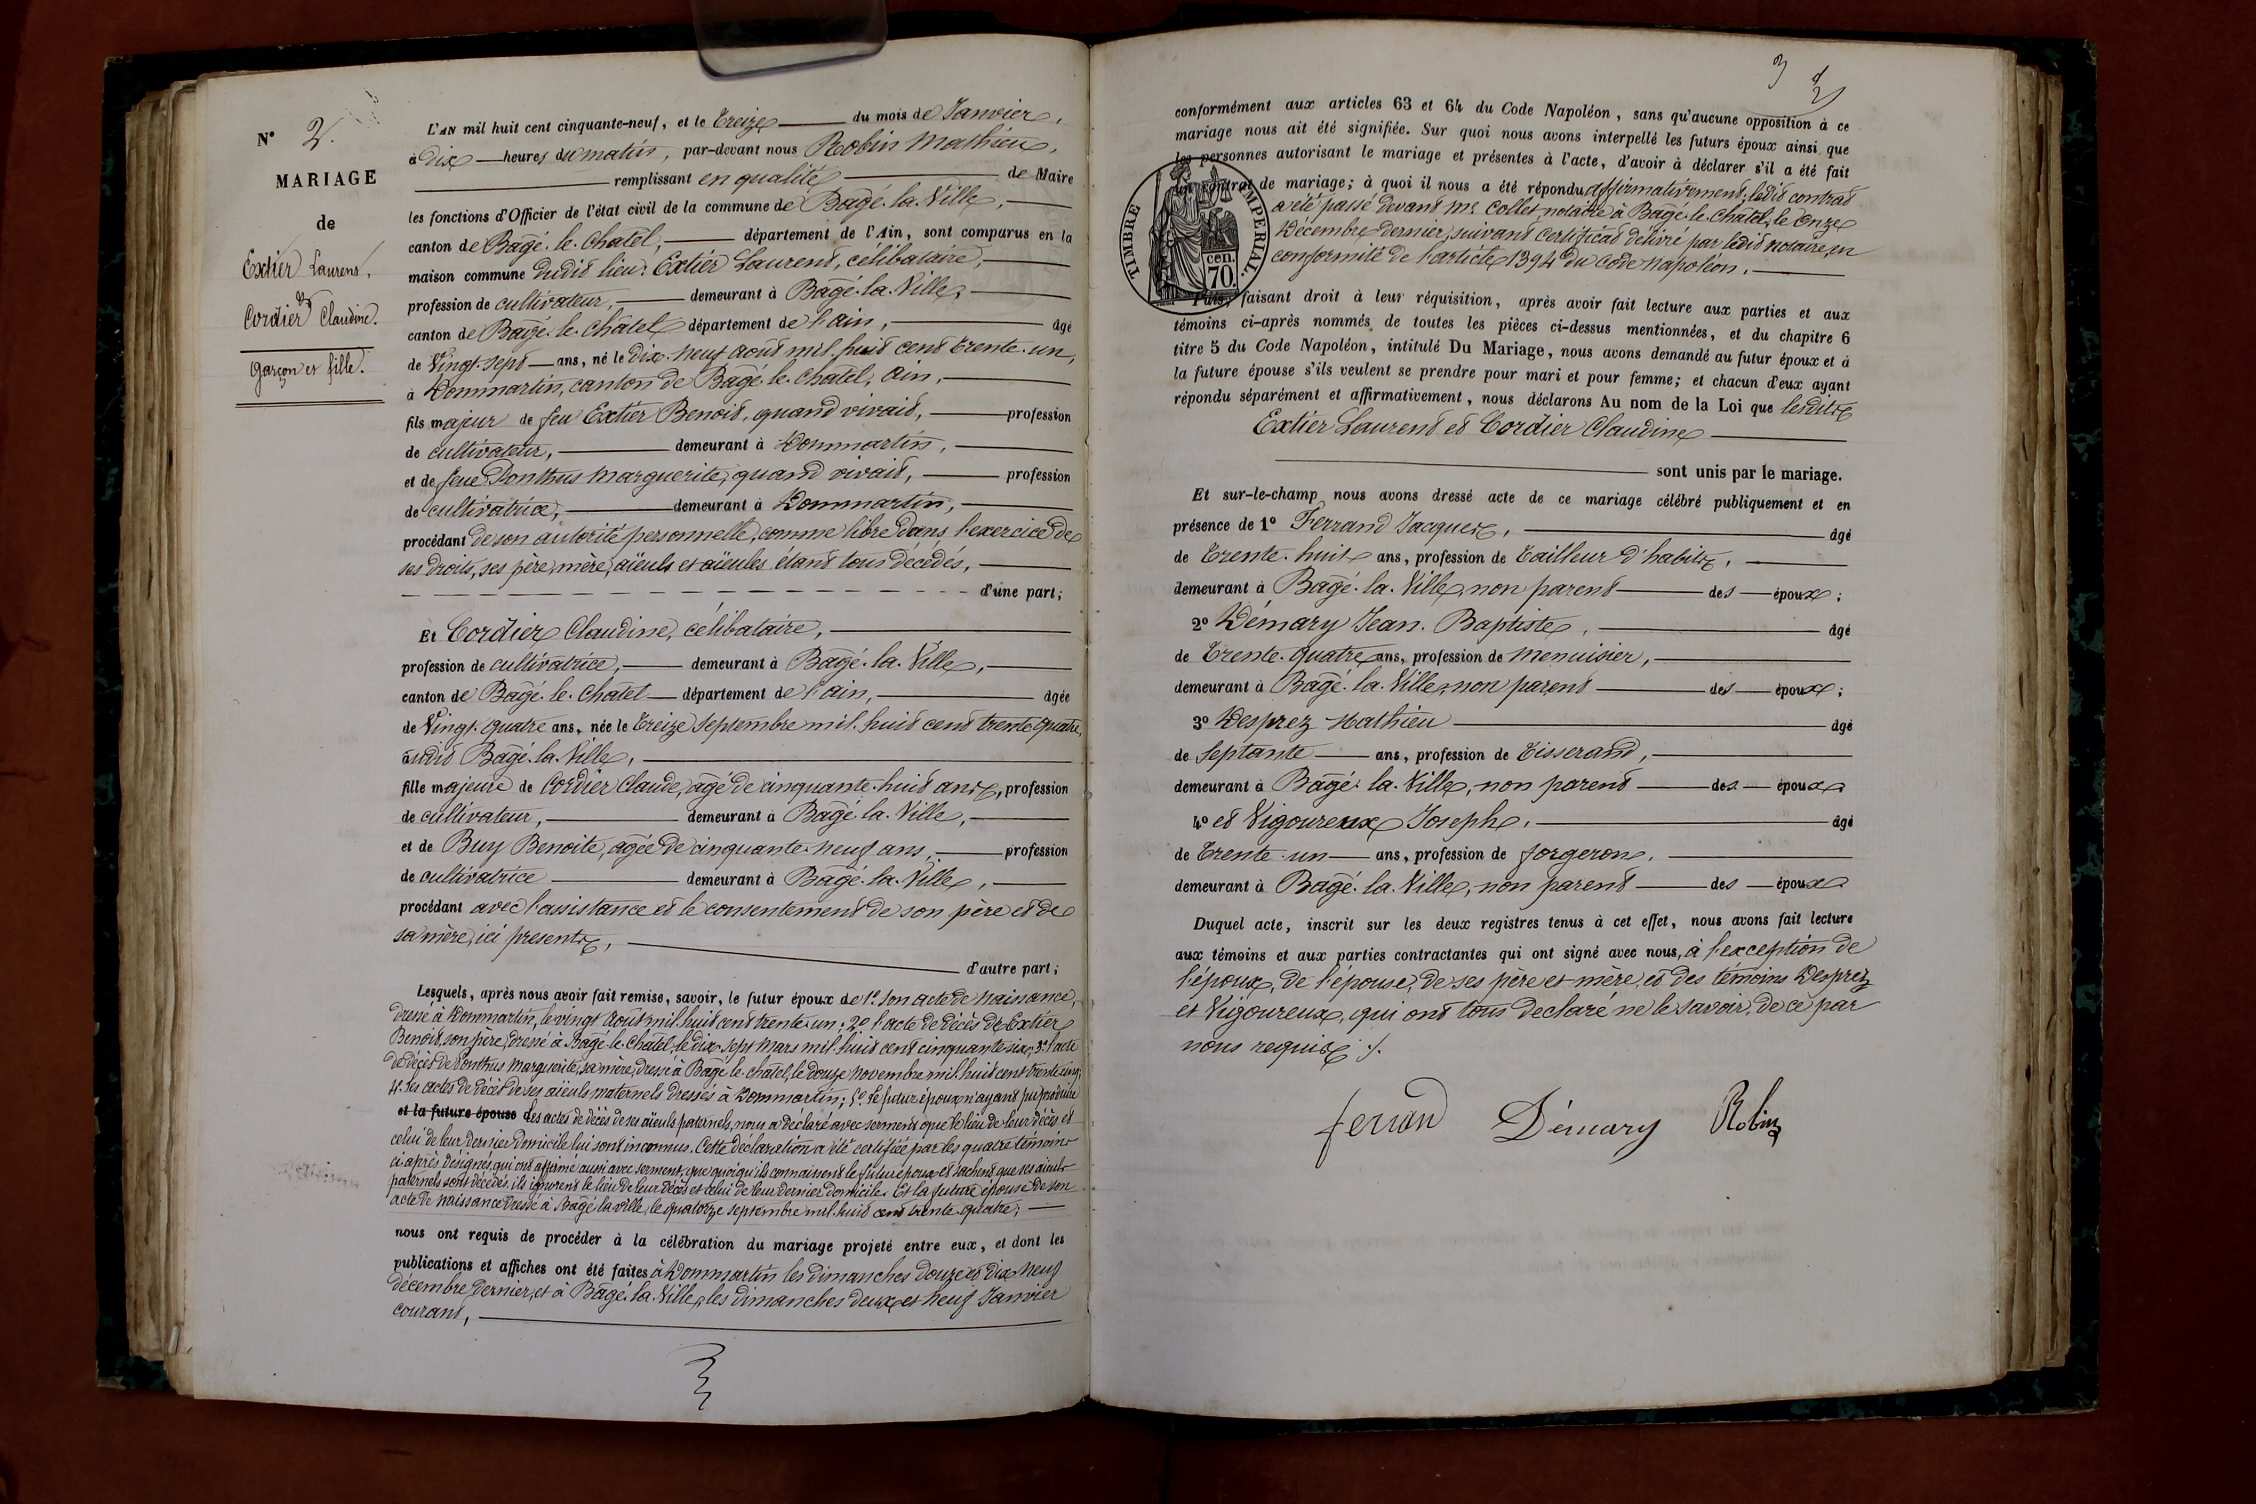 N° 2.
MARIAGE
de
Extier Laurent,
et
Cordier Claudine.
garçon et fille.
L'AN mil huit cent cinquante-neuf, et le treize du mois de Janvier,
à dix heures du matin, par-devant nous Robin Mathieu,
remplissant en qualité de Maire
les fonctions d'Officier de l'état civil de la commune de Bagé-la-Ville,
canton de Bagé-le-Châtel, département de l'Ain, sont comparus en la
maison commune dudit lieu: Extier Laurent, célibataire,
profession de cultivateur, demeurant à Bagé-la-Ville,
canton de Bagé-le-Châtel département de l'ain, âgé
de Vingt-sept ans, né le dix-neuf août mil-huit cent trente-un,
à Dommartin, canton de Bagé-le-Chatel, ain,
fils majeur de feu Extier Benoit, quand vivait, profession
de cultivateur, demeurant à Dommartin,
et de feue Ponthus Marguerite, quand vivait, profession
de cultivatrice, demeurant à Dommartin,
procédant de son autorité personnelle, comme libre dans l'exercice de
ses droits, ses père, mère, aïeuls et aïeules étant tous décédés,
d'une part;
Et Cordier Claudine, célibataire,
profession de cultivatrice, demeurant à Bagé-la-Ville,
canton de Bagé-le-Chatel département de l'ain, âgée
de Vingt-quatre ans, née le treize Septembre mil-huit cent trente quatre,
audit Bagé-la-Ville,
fille majeure de Cordier Claude, âgé de cinquante-huit ans, profession
de cultivateur, demeurant à Bagé-la-Ville,
et de Buy Benoite, agée de cinquante-neuf ans, profession
de cultivatrice demeurant à Bagé-la-Ville,
procédant avec l'assistance et le consentement de son père et de
sa mère, ici présents,
d'autre part;
Lesquels, après nous avoir fait remise, savoir, le futur époux de 1° son acte de Naissance,
dressé à Dommartin, le vingt août mil-huit cent trente-un; 2° l'acte de décès de Extier
Benoit, son père, dressé à Bagé-le-Chatel, le dix-sept Mars mil-huit cent cinquante-six; 3° l'acte
de décès de Ponthus Marguerite, sa mère, dressé à Bagé-le-chatel, le douze Novembre mil-huit cent trente cinq;
4° les actes de décès de ses aïeuls maternels dressés à Dommartin; 5° le futur époux n'ayant pu produire
et la future épouse les actes de décès de ses aïeuls paternels, nous a déclaré avec serment que le lieu de leur décès et
celui de leur dernier domicile lui sont inconnus. Cette déclaration a été certifiée par les quatre témoins
ci-après désignés, qui ont affirmé aussi avec serment, que quoiqu'ils connaissent le futur époux et sachent que ses aïeuls
paternels sont décédés, ils ignorent le lieu de leur décès et celui de leur dernier domicile. Et la future épouse de son
acte de Naissance dressé à Bagé-la-ville, le quatorze septembre mil-huit cent trente-quatre;
nous ont requis de procéder à la célébration du mariage projeté entre eux, et dont les
publications et affiches ont été faites à Dommartin les dimanches douze et dix-neuf
décembre dernier, et à Bagé-la-Ville, les dimanches deux et neuf Janvier
courant,
3
conformément aux articles 63 et 64 du Code Napoléon, sans qu'aucune opposition à ce
mariage nous ait été signifiée. Sur quoi nous avons interpellé les futurs époux ainsi que
les personnes autorisant le mariage et présentes à l'acte, d'avoir à déclarer s'il a été fait
un contrat de mariage; à quoi il nous a été répondu affirmativement; ledit contrat
a été passé devant Me Collet, notaire à Bagé-le-Châtel, le onze
Décembre dernier, suivant certificat délivré par ledit notaire, en
conformité de l'article 1394 du Code Napoléon.
TIMBRE IMPERIAL.
cen.
70.
Puis, faisant droit à leur réquisition, après avoir fait lecture aux parties et aux
témoins ci-après nommés de toutes les pièces ci-dessus mentionnées, et du chapitre 6
titre 5 du Code Napoléon, intitulé Du Mariage, nous avons demandé au futur époux et à
la future épouse s'ils veulent se prendre pour mari et pour femme; et chacun d'eux ayant
répondu séparément et affirmativement, nous déclarons Au nom de la Loi que lesdits
Extier Laurent et Cordier Claudine
sont unis par le mariage.
Et sur-le-champ nous avons dressé acte de ce mariage célébré publiquement et en
présence de 1° Ferrand Jacques, âgé
de trente-huit ans, profession de tailleur d'habits,
demeurant à Bagé-la-Ville, non parent des époux;
2° Démary Jean-Baptiste, âgé
de trente-quatre ans, profession de menuisier,
demeurant à Bagé-la-Ville, non parent des époux;
3° Desprez Mathieu âgé
de Septante ans, profession de tisserand,
demeurant à Bagé-la-Ville, non parent des époux
4° et Vigoureux Joseph, âgé
de trente-un ans, profession de forgeron,
demeurant à Bagé-la-Ville, non parent des époux
Duquel acte, inscrit sur les deux registres tenus à cet effet, nous avons fait lecture
aux témoins et aux parties contractantes qui ont signé avec nous, à l'exception de
l'époux, de l'épouse, de ses père et mère, et des témoins Desprez
et Vigoureux, qui ont tous déclaré ne le savoir, de ce par
nous requis ./.
ferrand Démary Robin